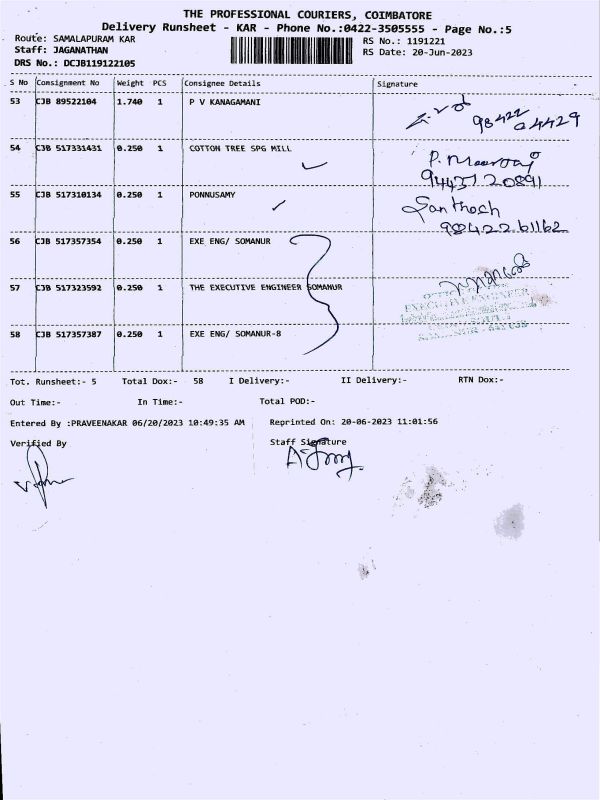 THE PROFESSIONAL COURIERS, COIMBATORE
Delivery Runsheet - KAR - Phone No.:0422-3505555 - Page No.:5
Route: SAMALAPURAM KAR
RS No.: 1191221
Staff: JAGANATHAN
RS Date: 20-Jun-2023
DRS No.: DCJB119122105
S No Consignment No Weight PCS Consignee Details Signature
53 CJB 89522104 1.740 1 P V KANAGAMANI
98422 04429
54 CJB 517331431 0.250 1 COTTON TREE SPG MILL
9443720891
55 CJB 517310134 0.250 1 PONNUSAMY
Santhosh
98422 61162
56 CJB 517357354 0.250 1 EXE ENG/ SOMANUR
57 CJB 517323592 0.250 1 THE EXECUTIVE ENGINEER SOMANUR
EXECUTIVE ENGINEER
58 CJB 517357387 0.250 1 EXE ENG/ SOMANUR-8
Tot. Runsheet:- 5 Total Dox:- 58 I Delivery:- II Delivery:- RTN Dox:-
Out Time:- In Time:- Total POD:-
Entered By :PRAVEENAKAR 06/20/2023 10:49:35 AM Reprinted On: 20-06-2023 11:01:56
Verified By Staff Signature